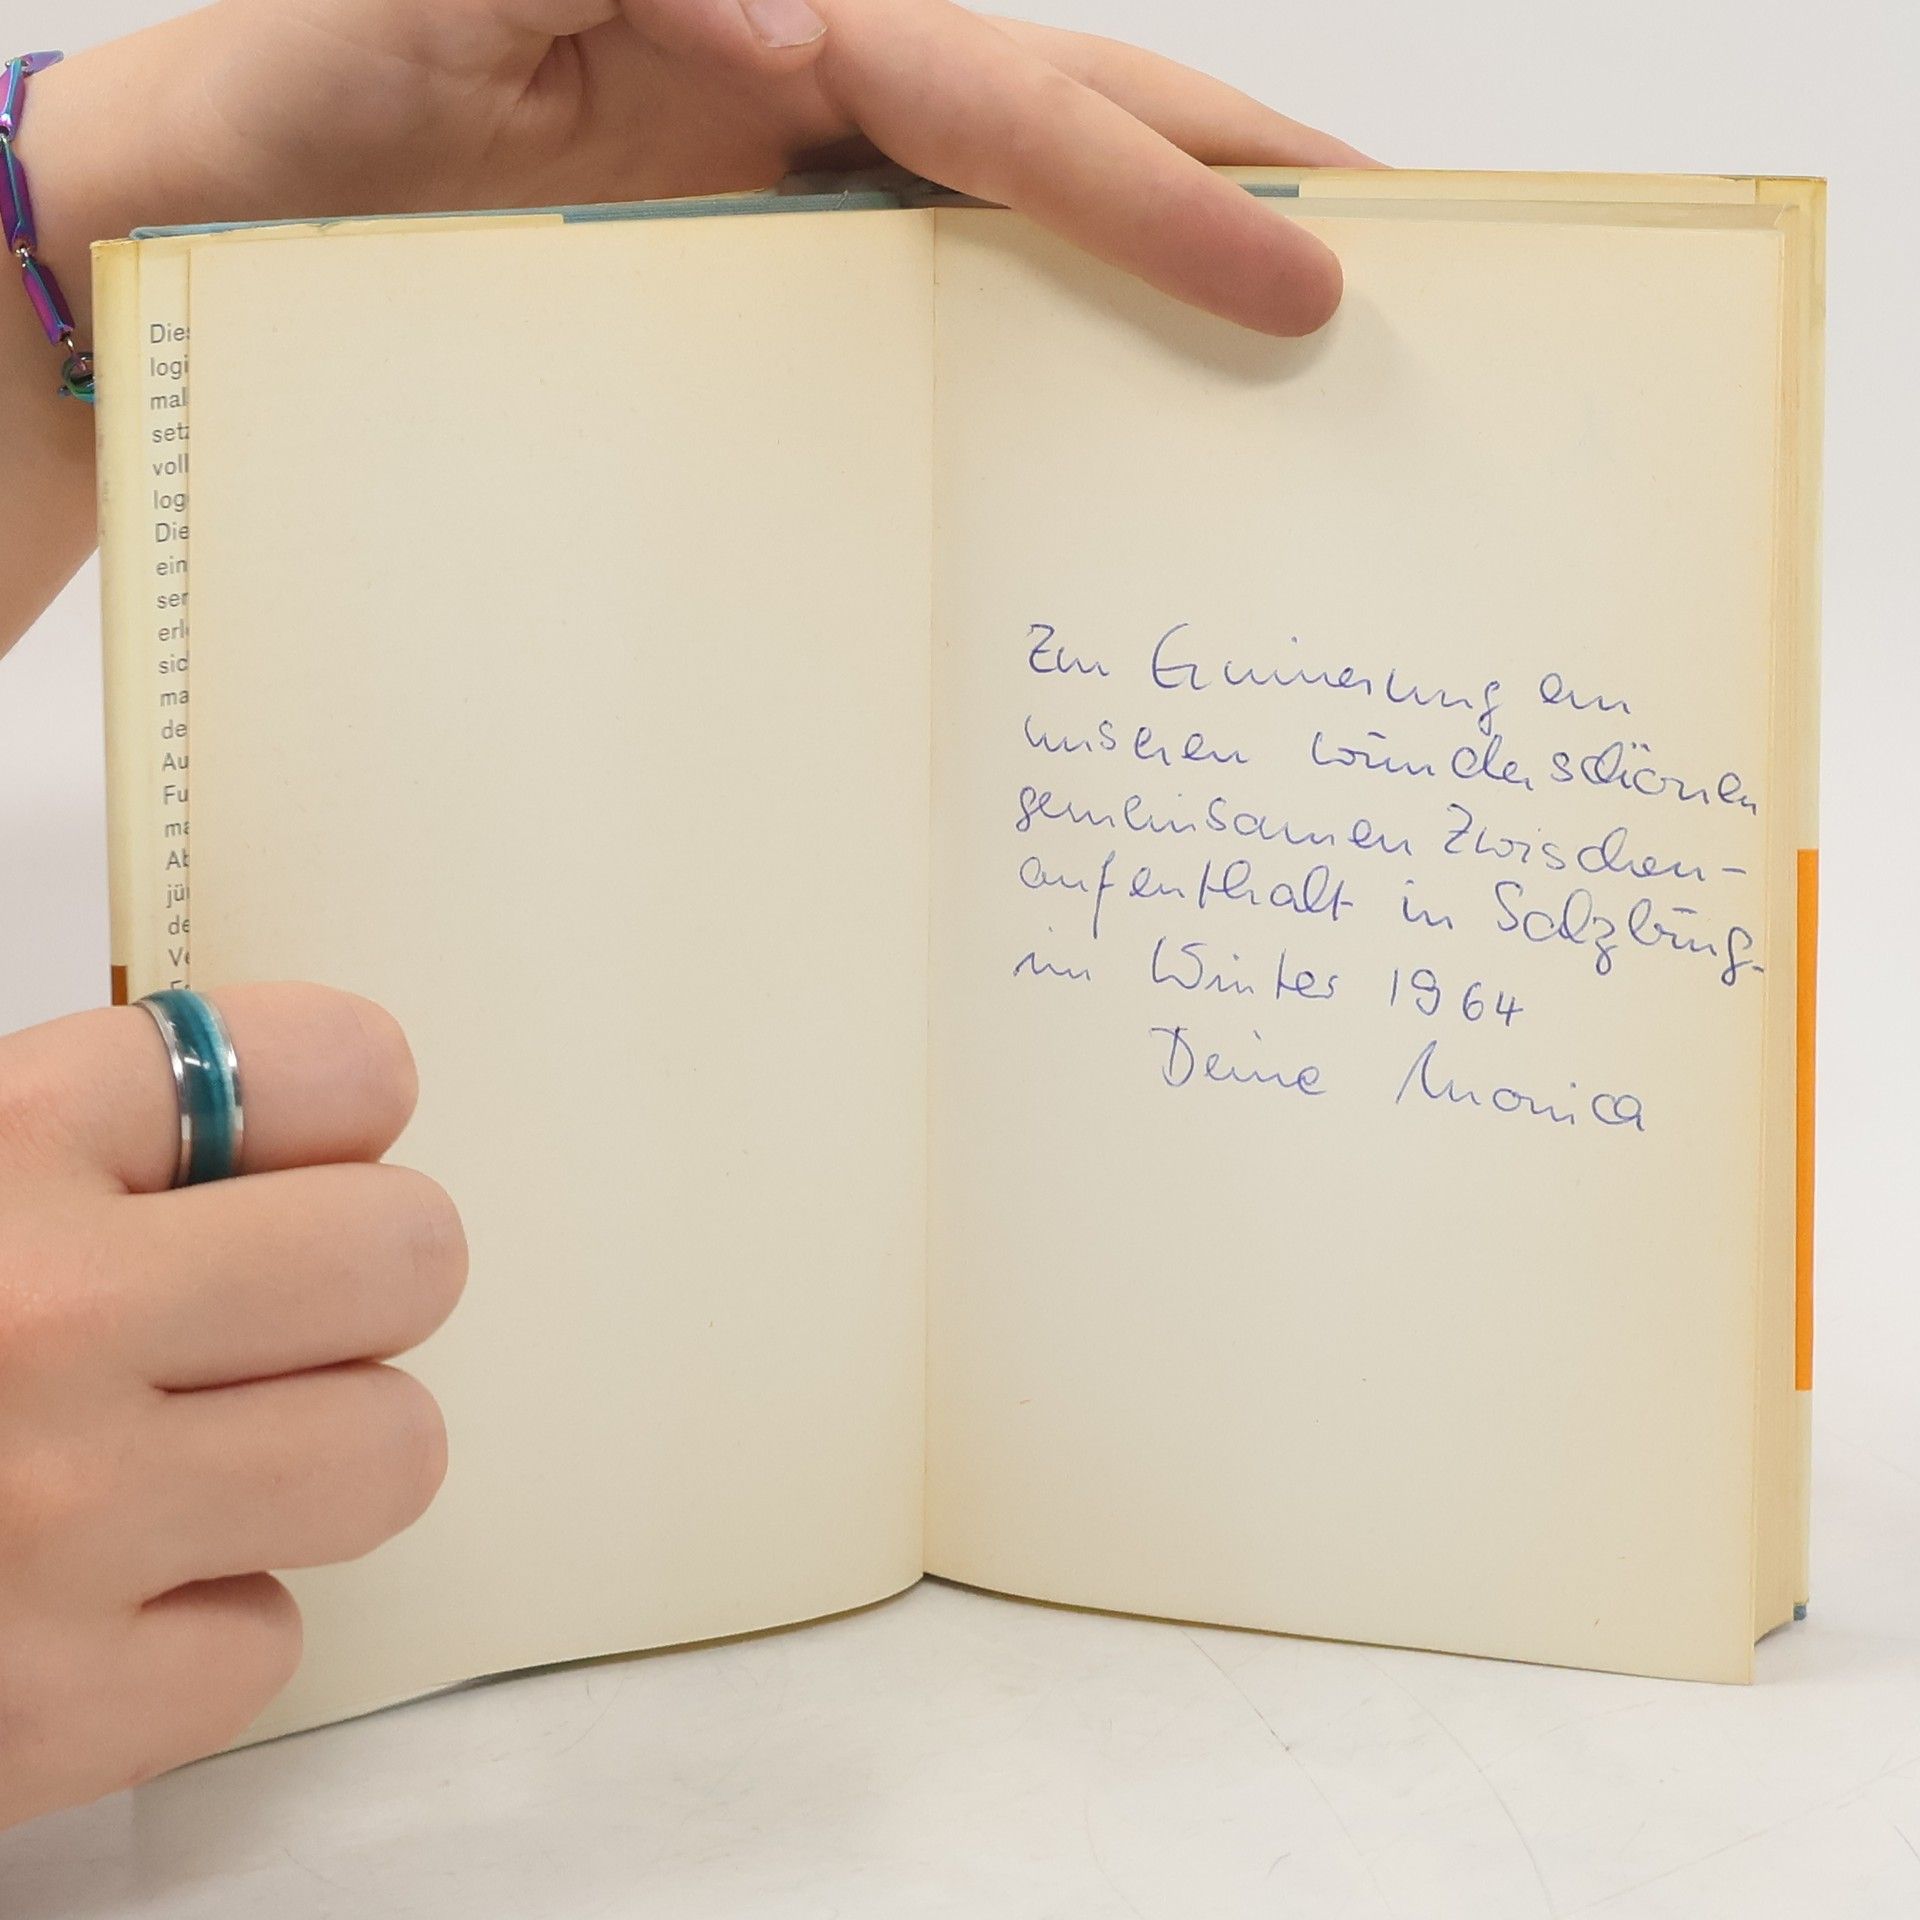 Dies
logi
mal
setz
voll
log
Die
ein
ser
erle
sic
ma
de
Au
Fu
ma
Ab
jün
de
Ve
Zur Erinnerung an
unseren wunderschönen
gemeinsamen Zwischen-
aufenthalt in Salzburg
im Winter 1964
Deine Monica